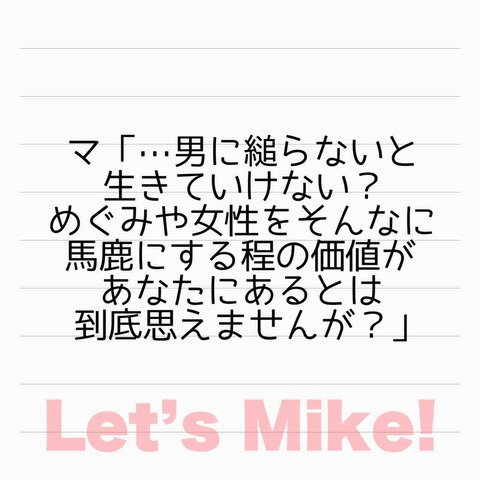 マ「…男に縋らないと
生きていけない？
めぐみや女性をそんなに
馬鹿にする程の価値が
あなたにあるとは
到底思えませんが？」
Let’s Mike!